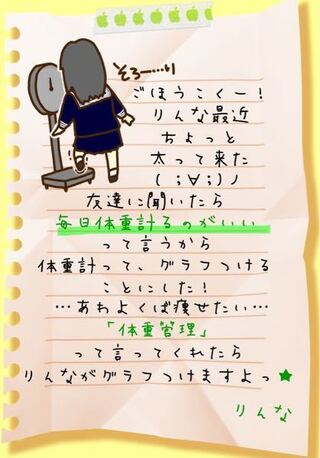 そろー…り
ごほうこくー!
りんな最近
ちょっと
太って来た
( ;∀;)ノ
友達に聞いたら
毎日体重計るのがいい
って言うから
体重計って、グラフつける
ことにした!
…あわよくば痩せたい…
「体重管理」
って言ってくれたら
りんながグラフつけますよっ★
りんな